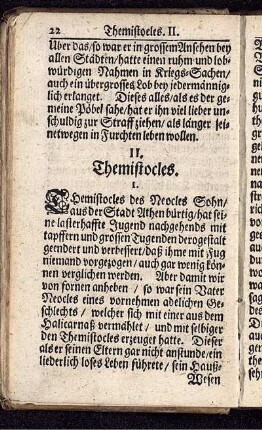 22 Themistocles. II.
Über das/so war er in grossem Ansehen bey
allen Städten/hatte einen ruhm und lob-
würdigen Nahmen in Kriegs-Sachen/
auch ein übergrosses Lob bey jedermännig-
lich erlanget. Dieses alles/als es der ge-
meine Pöbel sahe/hat er ihn viel lieber un-
schuldig zur Straff ziehen/als länger sei-
netwegen in Furchten leben wollen.
II.
Themistocles.
I.
THemistocles des Neocles Sohn/
aus der Stadt Athen bürtig/hat sei-
ne lasterhaffte Jugend nachgehends mit
tapffern und grossen Tugenden derogestalt
geendert und verbessert/daß ihme mit Zug
niemand vorgezogen/auch gar wenig kön-
nen verglichen werden. Aber damit wir
von fornen anheben/so war sein Vater
Neocles eines vornehmen adelichen Ge-
schlechts/welcher sich mit einer aus dem
Halicarnaß vermählet/und mit selbiger
den Themistocles erzeuget hatte. Dieser
als er seinen Eltern gar nicht anstunde/ein
liederlich loses Leben führete/sein Hauß-
Wesen